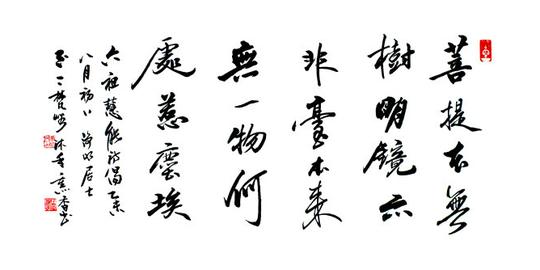 菩提本無
樹明鏡亦
非臺本來
無一物何
處惹塵埃
六祖慧能詩偈
八月初八居士
沐手熏香書